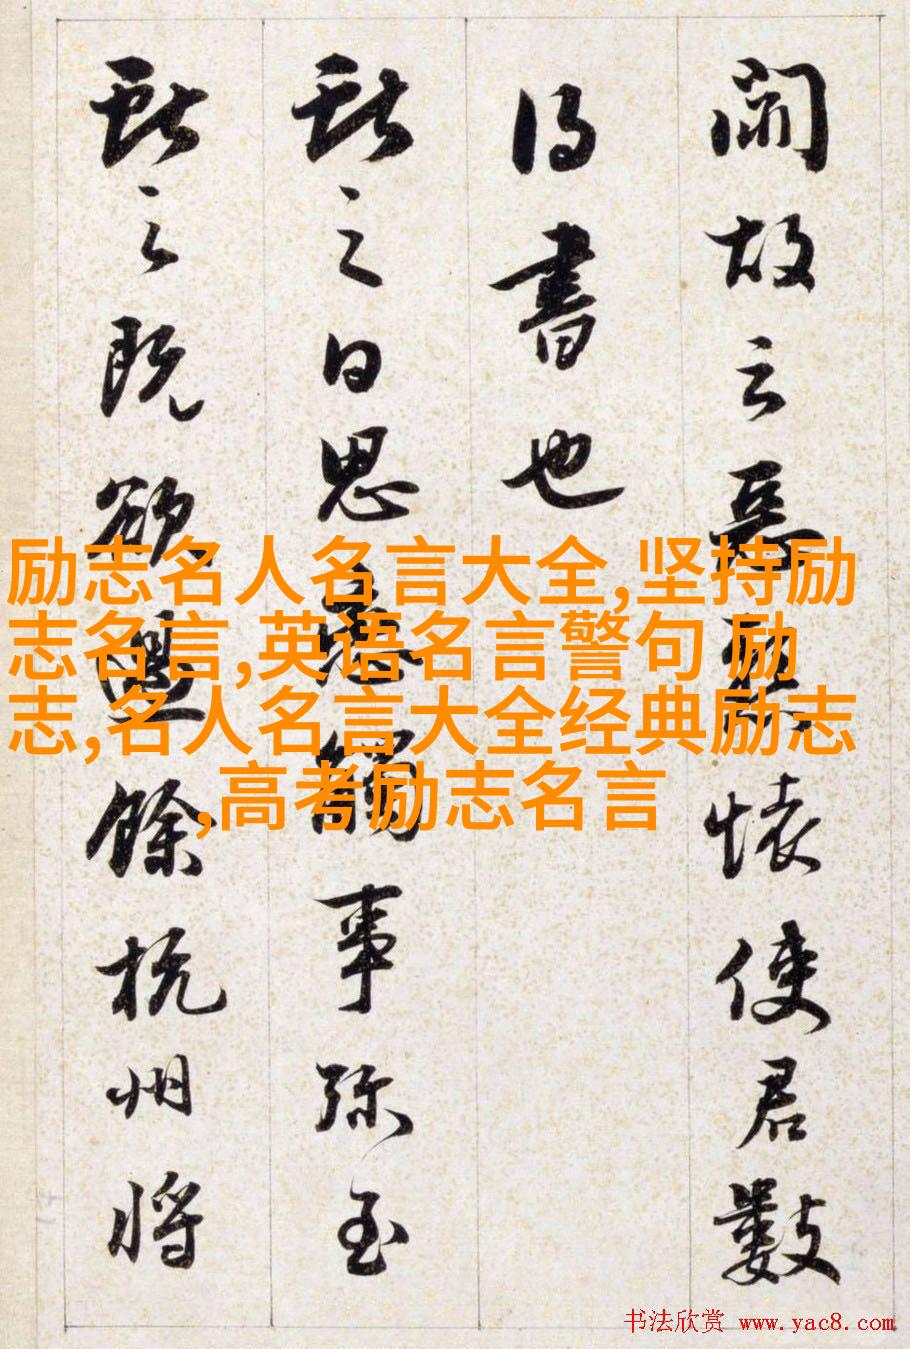 故云惡懐使君數
得書也
獻之日思戀觸事弥至
獻之既欲餘杭州將
励志名人名言大全,坚持励
志名言,英语名言警句 励
志,名人名言大全经典励志
,高考励志名言
书法欣赏 www.yac8.com